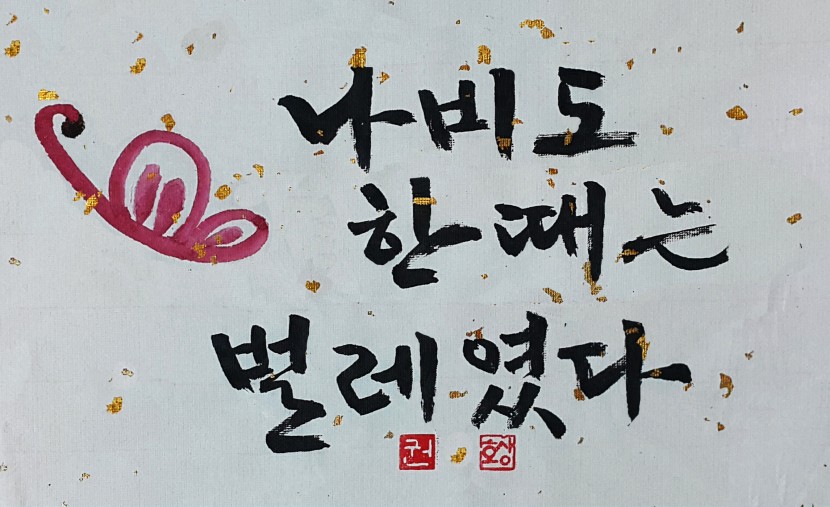 나비도
한때는
벌레였다
권 효상